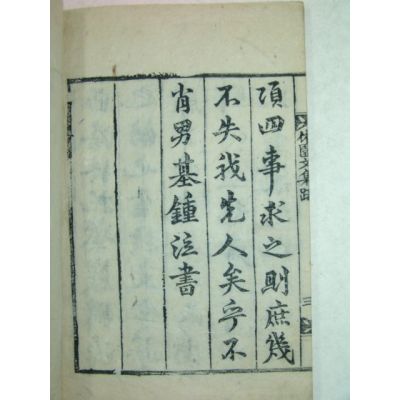 項四事求之則庶幾
不失我先人矣乎不
肖男基鍾泣書
園文集跋
三